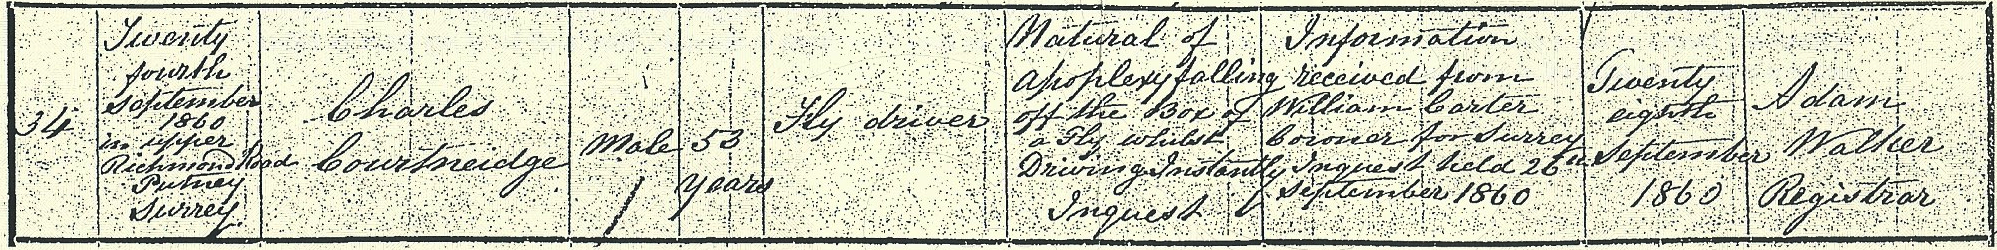 34
Twenty
fourth
September
1860
in upper
Richmond Road
Putney
Surrey
Charles
Courtneidge
Male
53
years
Fly driver
Natural of
Apoplexy falling
off the Box of
a Fly whilst
Driving Instantly
Inquest
Information
received from
William Carter
Coroner for Surrey
Inquest held 26th
September 1860
Twenty
eighth
September
1860
Adam
Walker
Registrar